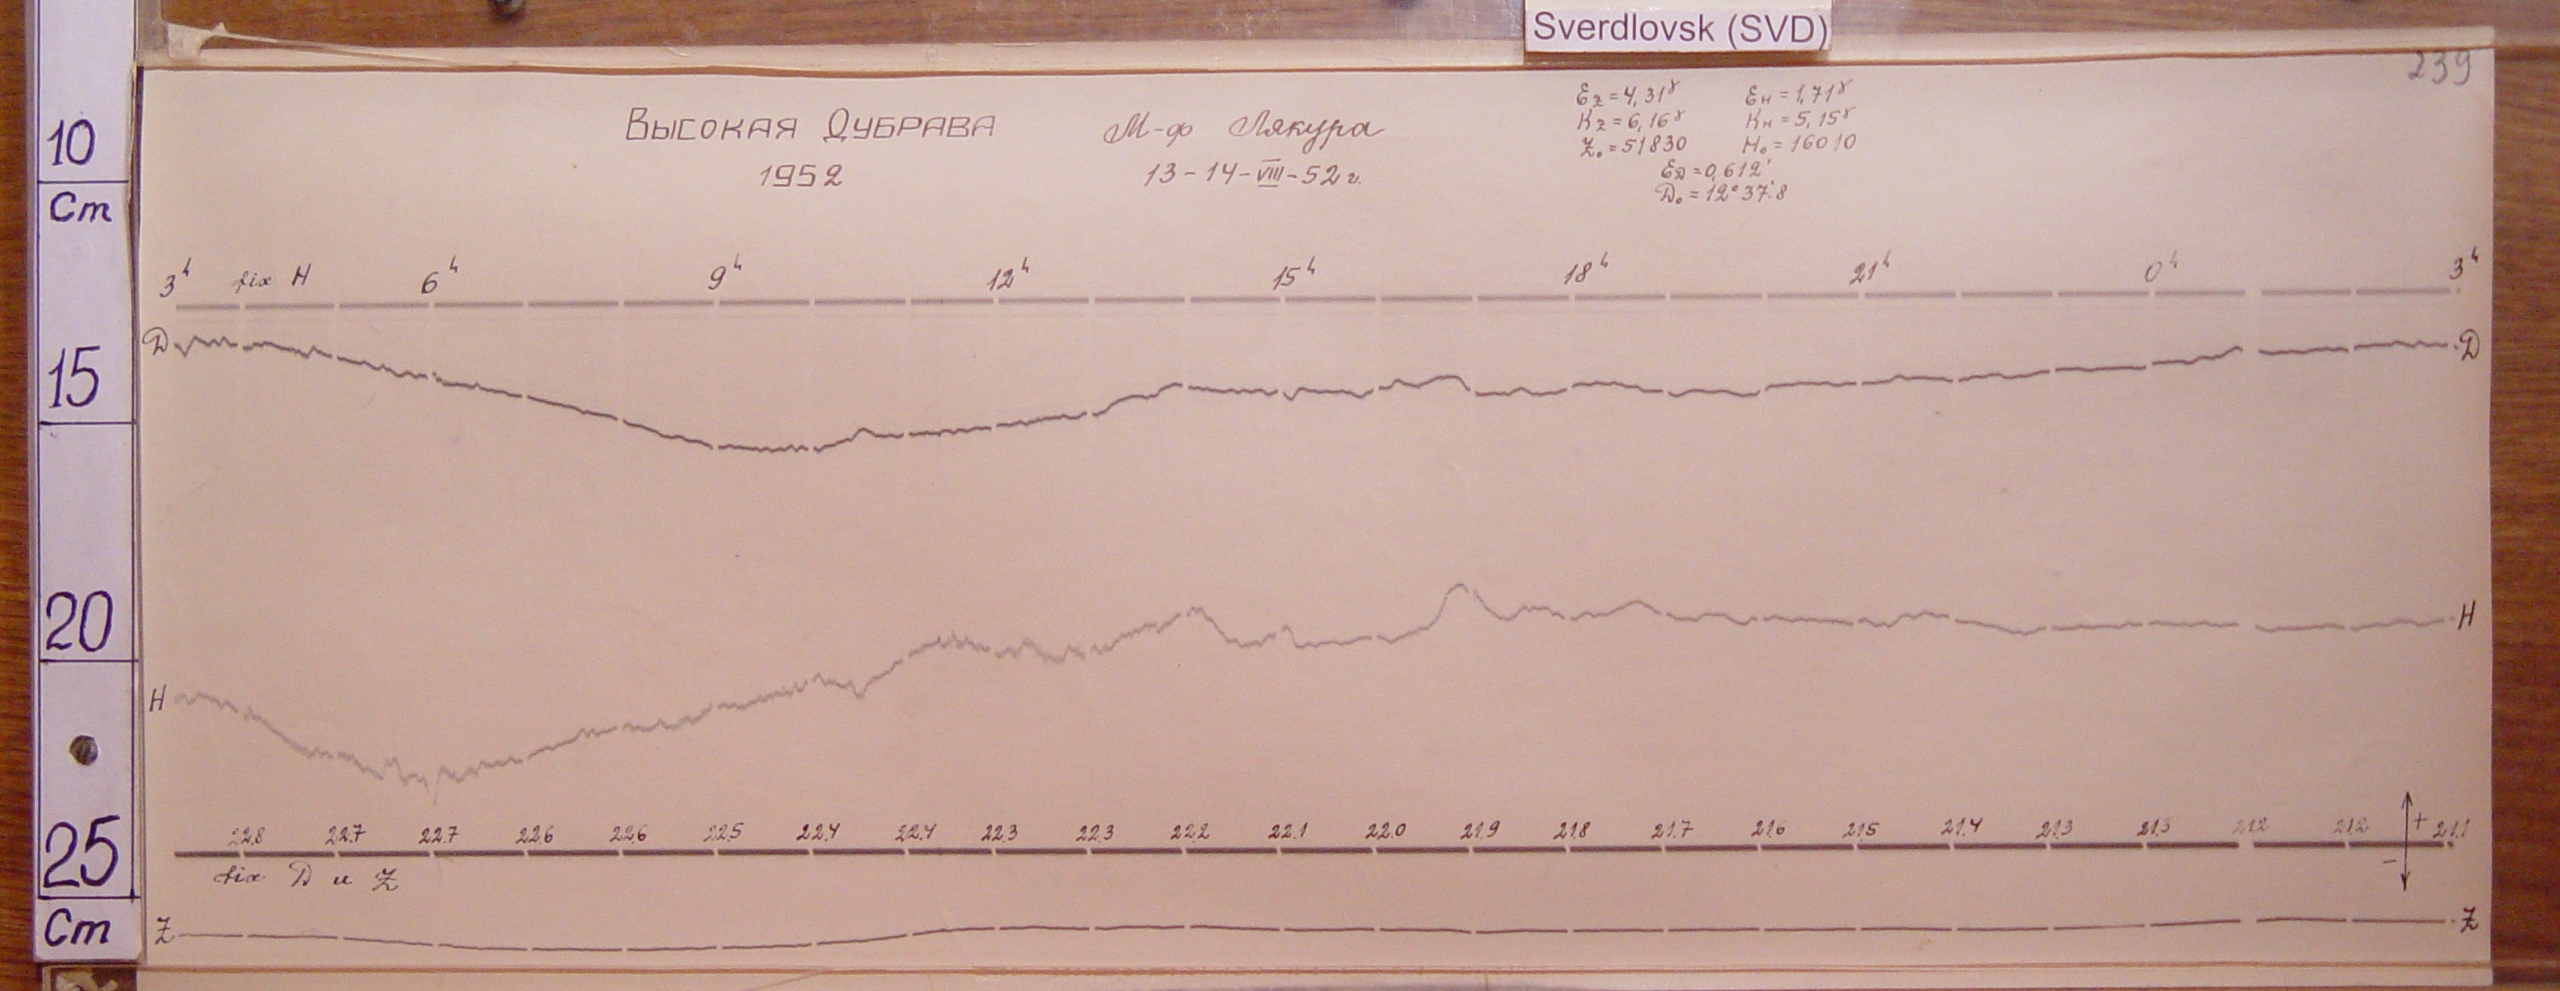 Sverdlovsk (SVD)
239
Высокая Дубрава
1952
М-ф Лякура
13-14-VIII-52 г.
Ez=4,31γ EH=1,71γ
Kz=6,16γ KH=5,15γ
Z₀=51830 H₀=16010
ED=0,612'
D₀=12°37.'8
10
Cm
15
20
25
Cm
3h fix H 6h 9h 12h 15h 18h 21h 0h 3h
D D
H H
22.8 22.7 22.7 22.6 22.6 22.5 22.4 22.4 22.3 22.3 22.2 22.1 22.0 21.9 21.8 21.7 21.6 21.5 21.4 21.3 21.3 21.2 21.2 + 21.1
fix D и Z -
Z Z